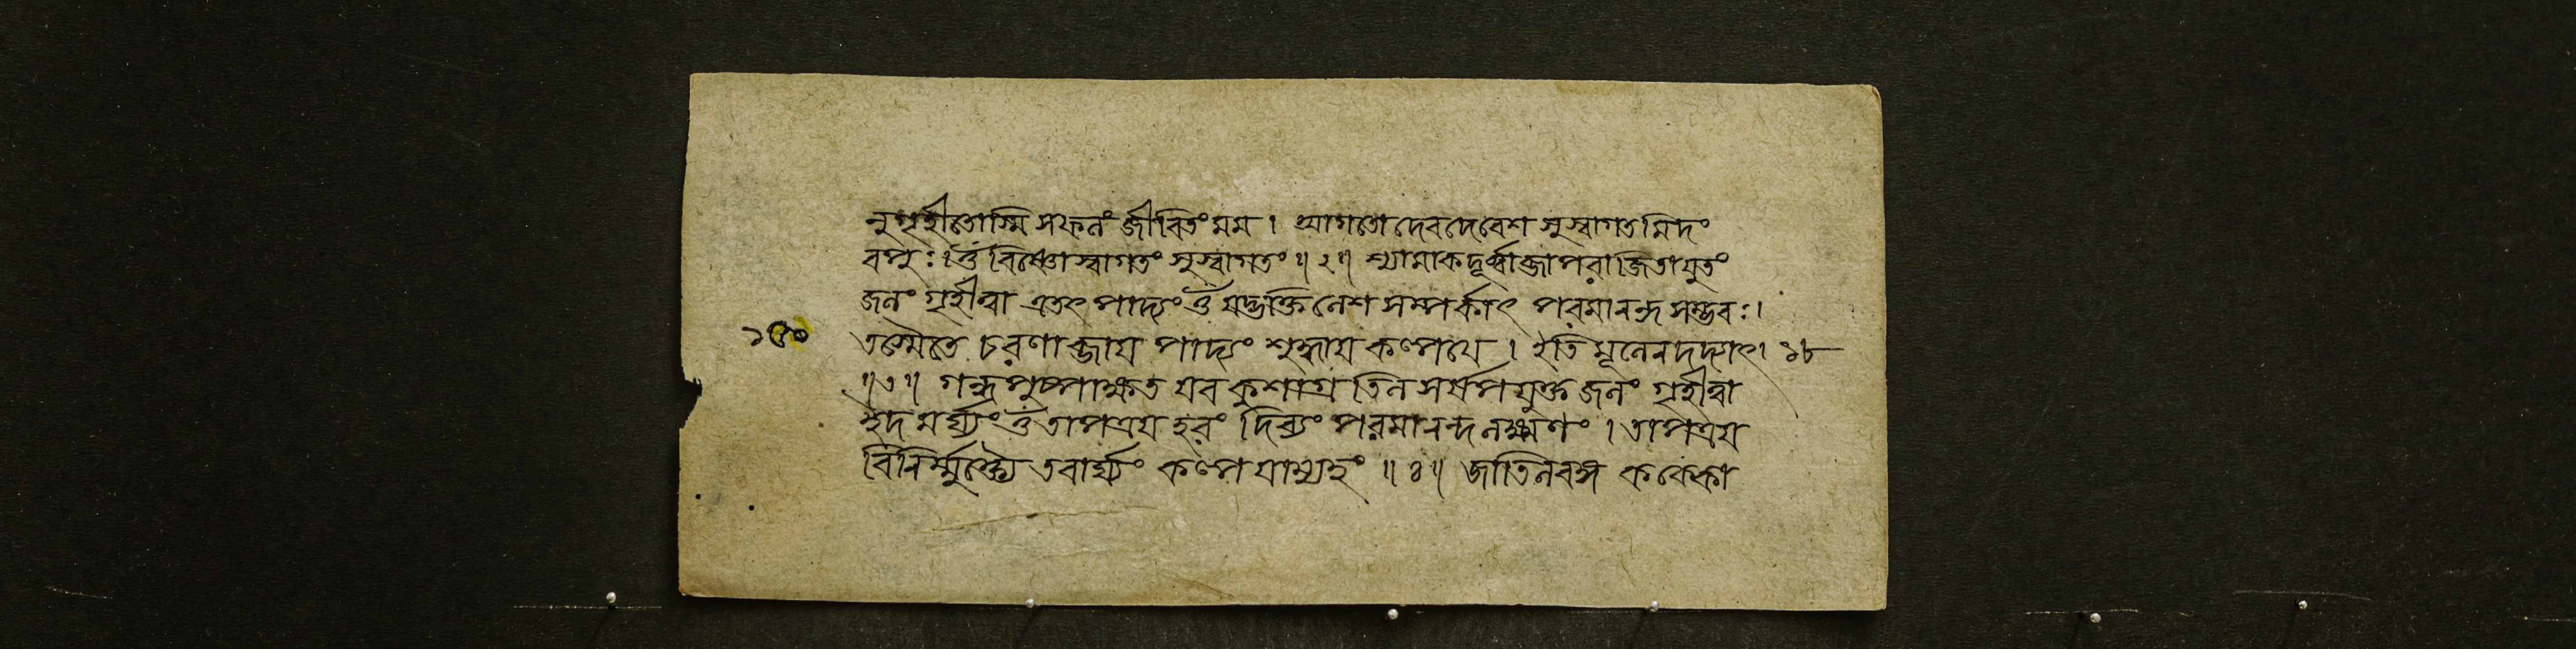 নুগৃহীতোস্মি সফলং জীবিতং মম। আগতো দেবদেবেশ সুস্বাগতমিদং
বপুঃ। ওঁ বিষ্ণো স্বাগতং সুস্বাগতং॥২॥ শ্যামাকদূর্ব্বাব্জাপরাজিতাযুতং
জলং গৃহীত্বা এতৎ পাদ্যং ওঁ যদ্ভক্তিলেশসম্পর্কাৎ পরমানন্দসম্ভবঃ।
তস্মৈতে চরণাব্জায পাদ্যং শুদ্ধায কল্পযে। ইতি মূলেন দদ্যাৎ। ১৮
॥৩॥ গন্ধপুষ্পাক্ষত যব কুশাগ্র তিল সর্ষপযুক্ত জলং গৃহীত্বা
ইদমর্ঘ্যং ওঁ তাপত্রযহরং দিব্যং পরমানন্দলক্ষণং। তাপত্রয
বিনির্ম্মুক্ত্যৈ তবার্ঘ্যং কল্পযাম্যহং॥৪॥ জাতিলবঙ্গ কক্কোলা